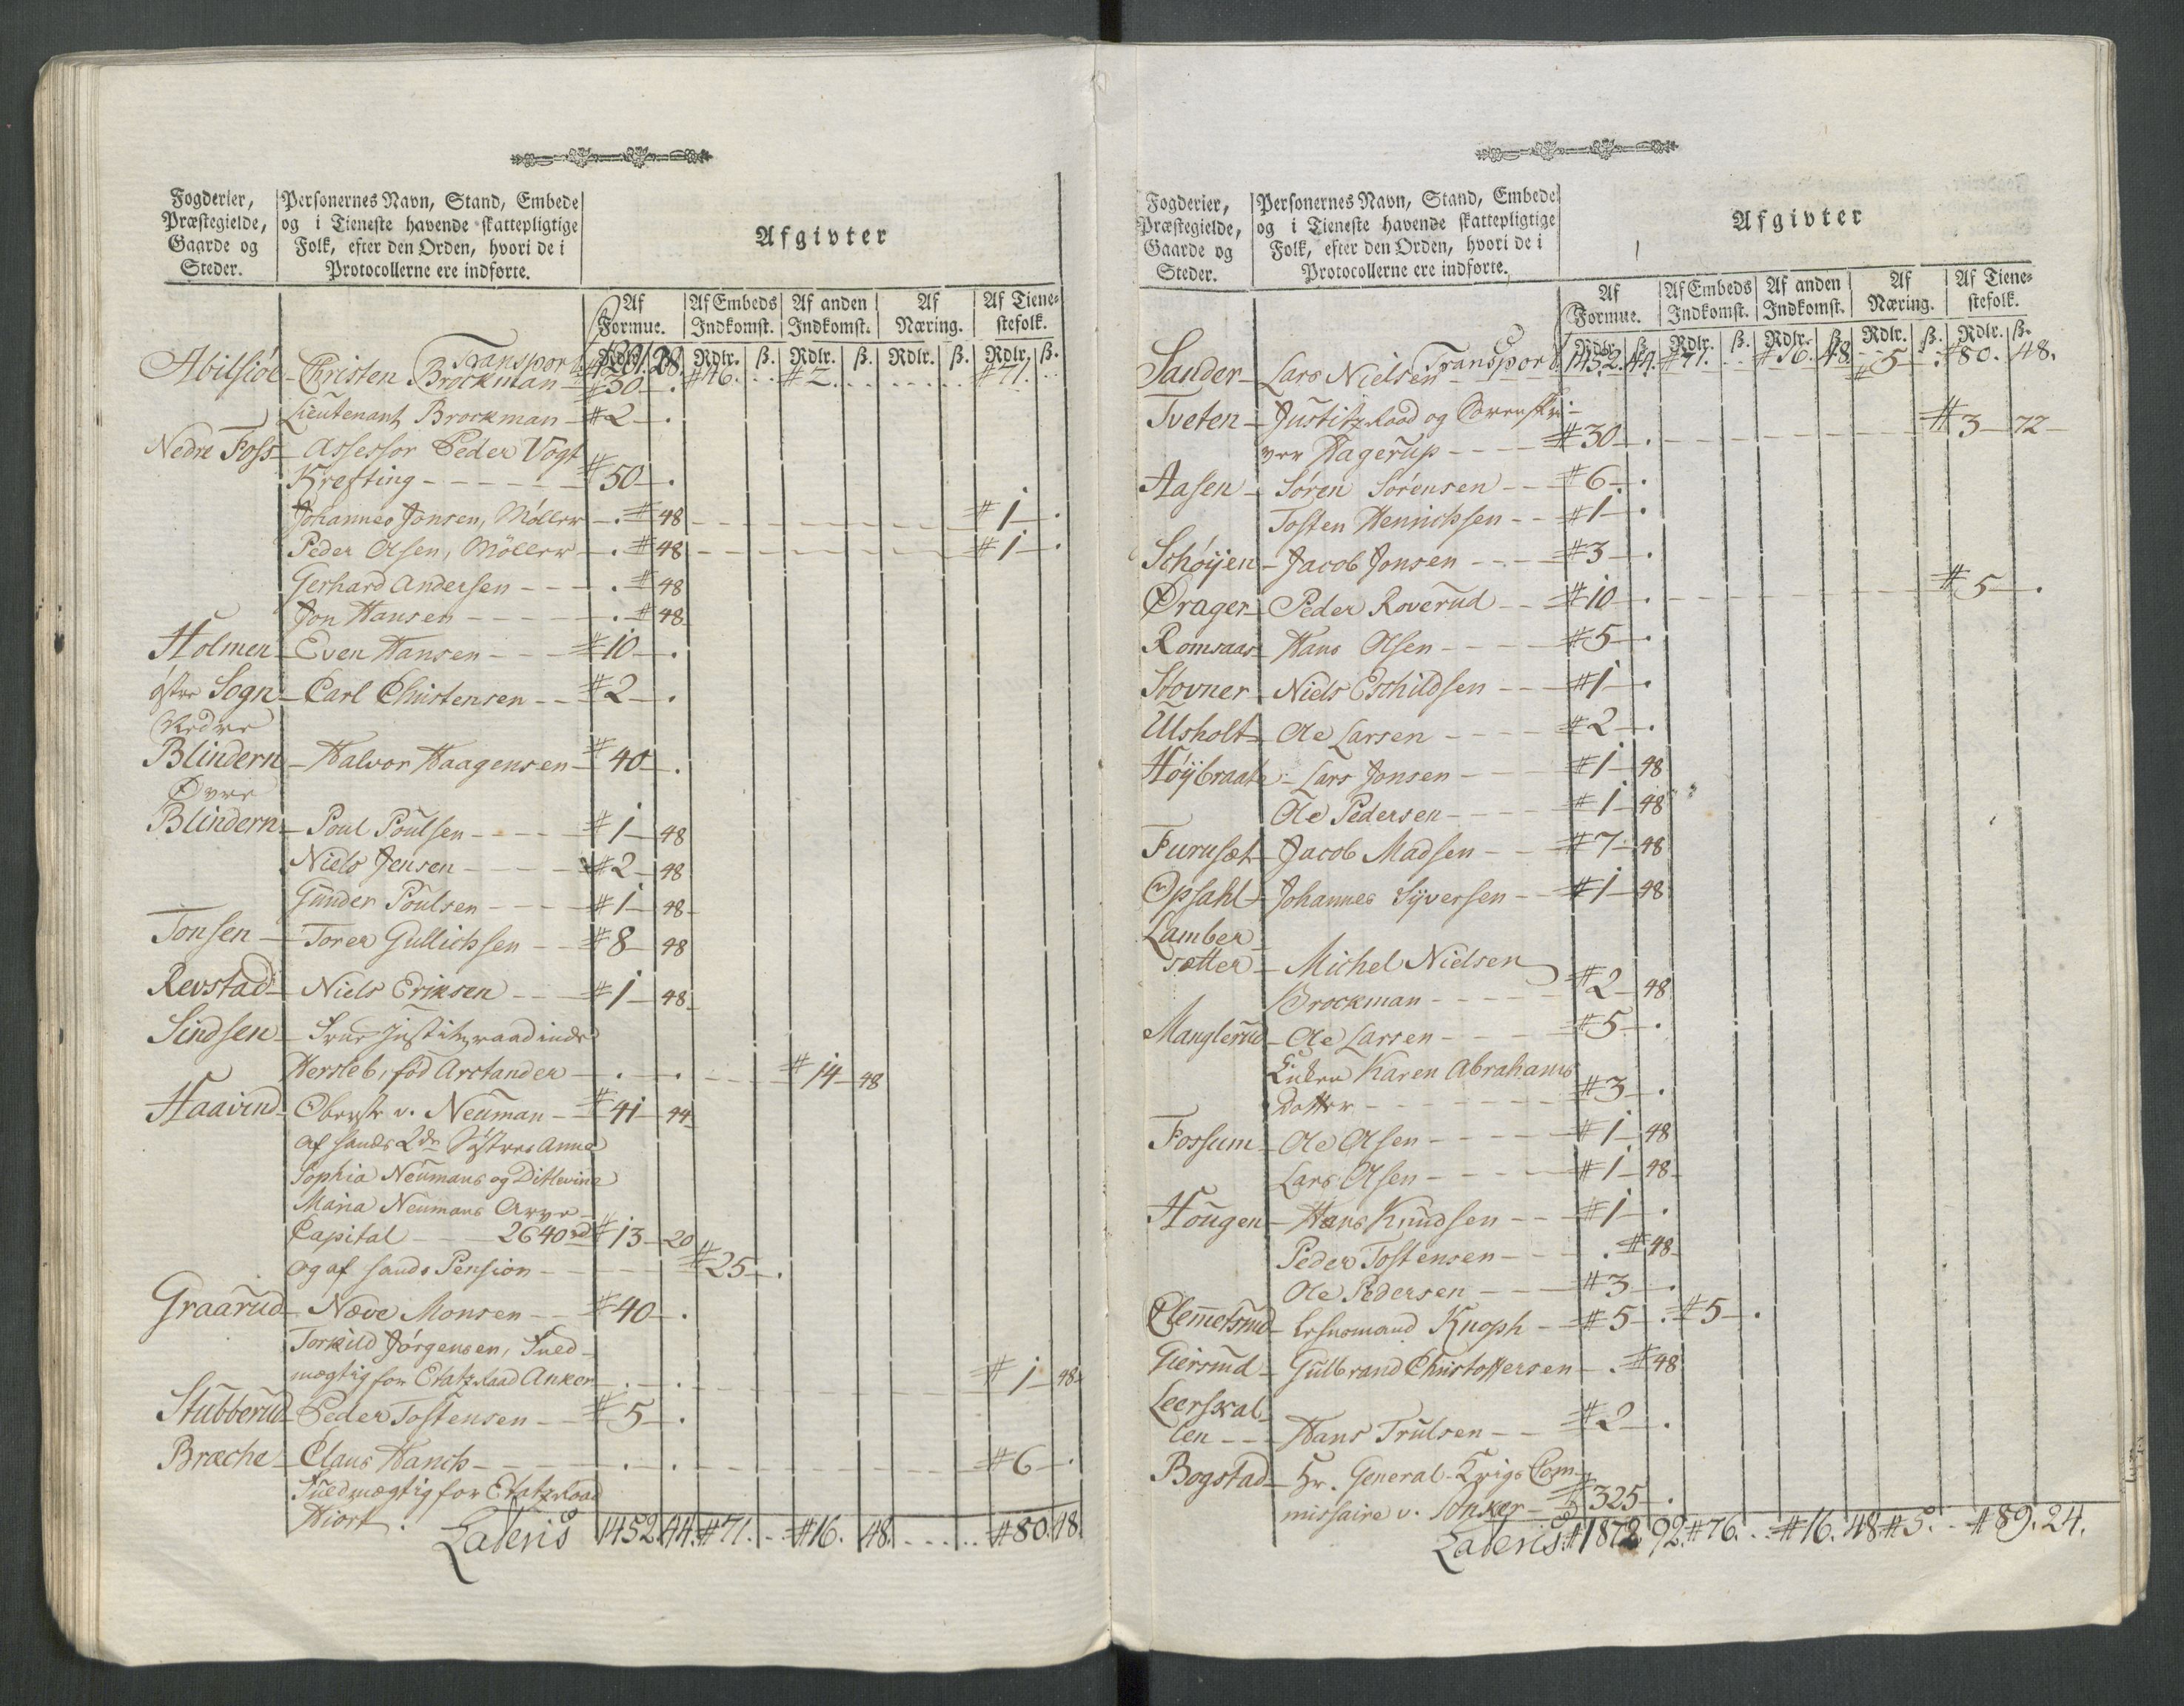 Fogderier, Præstegielde, Gaarde og Steder. | Personernes Navn, Stand, Embede og i Tieneste havende skattepligtige Folk, efter den Orden, hvori de i Protocollerne ere indførte. | Afgivter
Af Formue. | Af Embeds Indkomst. | Af anden Indkomst. | Af Næring. | Af Tienestefolk.
Rdlr. ß. | Rdlr. ß. | Rdlr. ß. | Rdlr. ß. | Rdlr. ß.
Transport 1201. 28. #46. . . #2. . . . . . . . #71. . .
Abilsiöe - Christen Brockman - #30 - .
Lieutenant Brockman - #2 - .
Nedre Foss - Assessor Peder Vogt
Krefting - - - - - - #50 - .
Johannes Jonsen, Möller - . # 48 - - - - - - - #1 - .
Peder Olsen, Möller - . # 48 - - - - - - - #1 - .
Gerhard Andersen - - - . # 48
Jon Hansen - - - - - . # 48
Holmen - Even Hansen - - - #10 - .
östre Sogn - Carl Christensen - - #2 - .
Nedre
Blindern - Halvor Haagensen - #40 - .
Øvre
Blindern - Poul Poulsen - - - - #1 - 48
Niels Jensen - - - - #2 - 48
Gunder Poulsen - - - - #1 - 48
Tonsen - Torer Gullichsen - - #8 - 48
Revstad - Niels Eriksen - - - #1 - 48
Sindsen - Frue Justitzraadinde
Hersleb, föd Arctander - . - . - - - #14 - 48
Haavind - Oberste v. Neuman - #41 - 44
af hands 2de Söstres Anna
Sophia Neumans og Ditlevine
Maria Neumans Arve-
Capital - - - 2640 rd #13 - 20
og af hands Pension - - - - - #25 - .
Graarud - Næve Monsen - - #40 - .
Torkild Jörgensen, Fuld-
mægtig for Etatzraad Anker - . - . - - - - - - #1 - 48
Stubberud - Peder Tostensen - - #5 - .
Bræche - Claus Hanch - - - - . - . - - - - - - #6 - .
Fuldmægtig for Etatzraad
Hiort.
Lateris 1452. 44. #71. . - #16. 48. . . . . #80. 48.
Fogderier, Præstegielde, Gaarde og Steder. | Personernes Navn, Stand, Embede og i Tieneste havende skattepligtige Folk, efter den Orden, hvori de i Protocollerne ere indførte. | Afgivter
Af Formue. | Af Embeds Indkomst. | Af anden Indkomst. | Af Næring. | Af Tienestefolk.
Rdlr. ß. | Rdlr. ß. | Rdlr. ß. | Rdlr. ß. | Rdlr. ß.
Transport 1452. 44. #71. . . #16. 48. . . #80. 48.
Sander - Lars Nielsen - - - - - - - - #5 - .
Tveten - Justitzraad og Sorenskri-
ver Hagerup - - - - #30 - . - - - - - - - #3 - 72
Aasen - Sören Sörensen - - #6 - .
Tosten Henrichsen - - #1 - .
Schöyen - Jacob Jonsen - - - #3 - .
Ørager - Peder Roverud - - #10 - . - - - - - - - #5 - .
Romsaas - Hans Olsen - - - - #5 - .
Stovner - Niels Eschildsen - - #1 - .
Ulsholt - Ole Larsen - - - - #2 - .
Höybraate - Lars Jonsen - - - #1 - 48
Ole Pedersen - - - - #1 - 48
Furusæt - Jacob Madsen - - #7 - 48
Opsahl - Johannes Syversen - - #1 - 48
Lamber-
sætter - Michel Nielsen
Brockman - - - - - #2 - 48
Manglerud - Ole Larsen - - - - #5 - .
Enken Karen Abrahams
Datter - - - - - - - #3 - .
Fossum - Ole Olsen - - - - - #1 - 48
Lars Olsen - - - - - #1 - 48
Hougen - Hans Knudsen - - #1 - .
Peder Tostensen - - - . # 48
Ole Pedersen - - - #3 - .
Clemetsrud - Lehnsmand Knoph - #5 - . #5 - .
Giersrud - Gulbrand Christoffersen - . # 48
Leerskal-
len - - - Hans Trulsen - - #2 - .
Bogstad - Hr. General-Krigs Com-
missaire v. Anker - #325 - .
Lateris. #1872 92. #76. . - #16. 48 #5. - #89. 24.